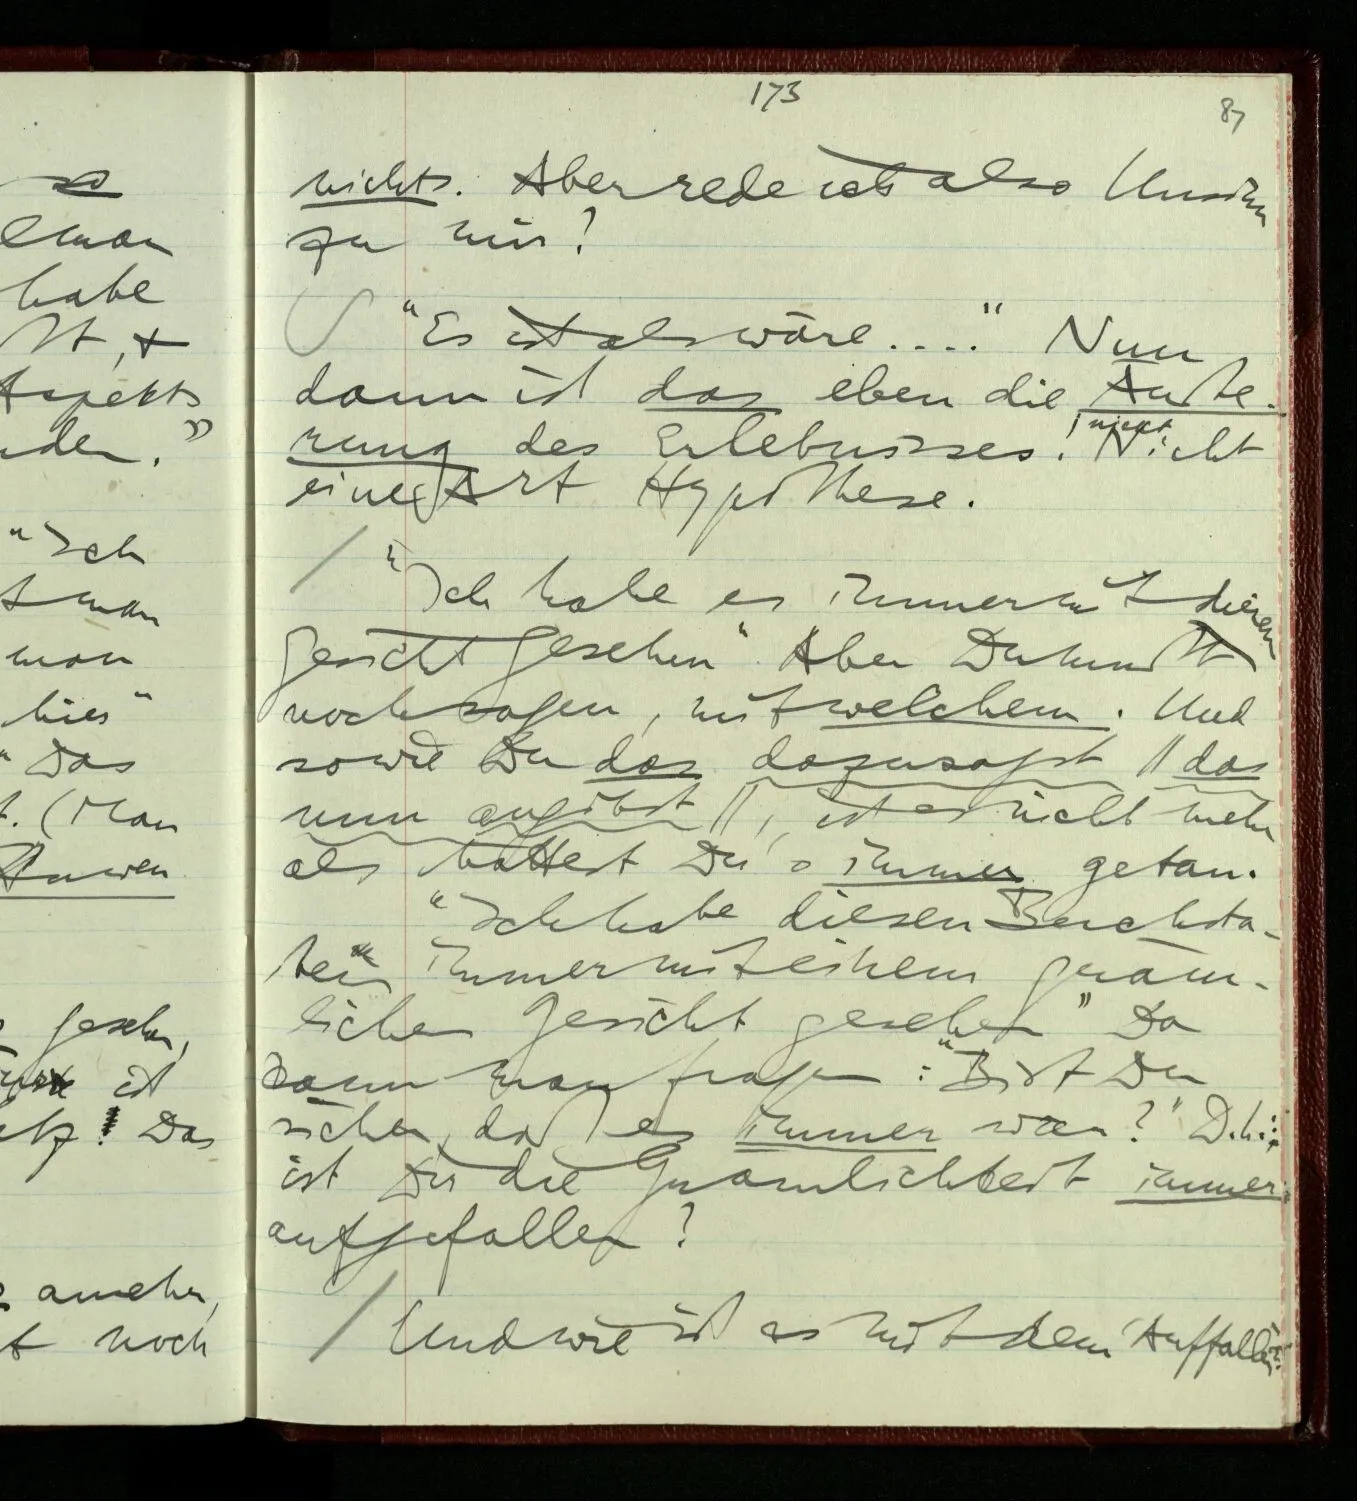 so
man
habe
ist, +
Aspekts
nden."
"Ich
t man
man
hies"
"Das
t. (Man
gesehen,
ist
atz! Das
ansehen,
t noch
173
87
nichts. Aber rede ich also Unsinn
zu mir?
∫ "Es ist als wäre...." Nun
dann ist das eben die Äuße-
rung des Erlebnisses! Nicht
eine Art Hypothese.
/ "Ich habe es immer mit diesem
Gesicht gesehen". Aber Du mußt
noch sagen, mit welchem. Und
sowie Du das dazusagst // das
nun angibst //, ist es nicht mehr
als hättest Du's immer getan.
"Ich habe diesen Buchsta-
ben immer mit einem gräm-
lichen Gesicht gesehen" Da
kann man fragen: "Bist Du
sicher, daß es immer war?" D.h.:
ist Dir die Grämlichkeit immer
aufgefallen?
/ Und wie ist es mit dem 'Auffallen'?